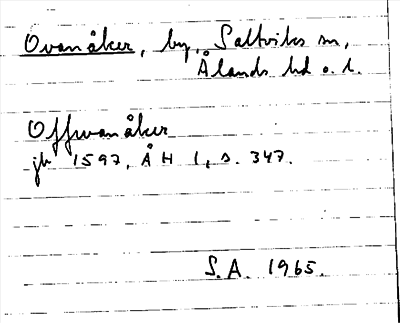 Ovanåker, by, Saltviks sn,
Ålands hd o. l.
Offwanåker
jb 1597, ÅH 1, s. 347.
S.A. 1965.